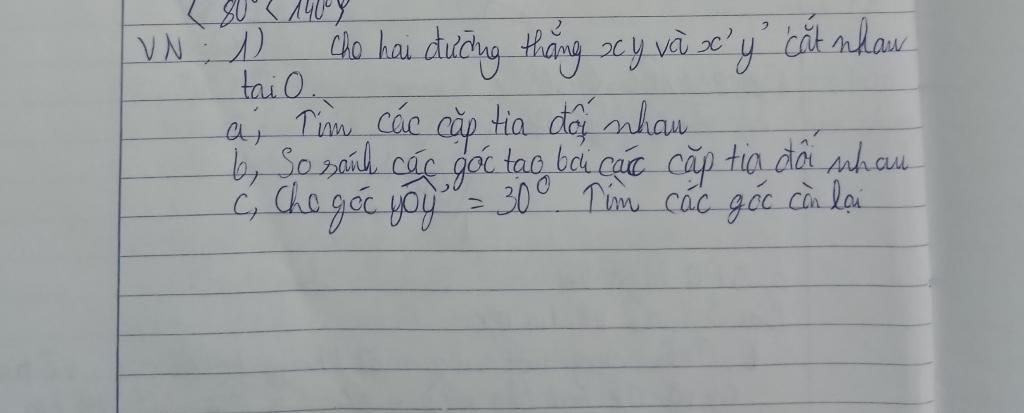 < 80° < 140°
VN: 1) Cho hai đường thẳng xy và x'y' cắt nhau
tại O.
a, Tìm các cặp tia đối nhau
b, So sánh các góc tạo bởi các cặp tia đối nhau
c, Cho góc yÔy' = 30°. Tìm các góc còn lại